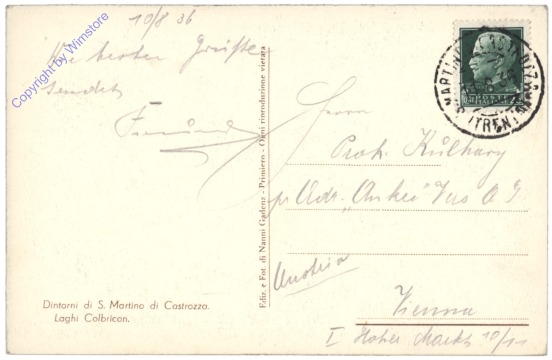 10/8 36
Die besten Grüße
sendet
Copyright by Wimstore
Ediz. e Fot. di Nanni Gadenz - Primiero - Ogni riproduzione vietata
MARTINO
(TREN
POSTE
Herrn
Prok. Külhary
pr Adr. "Anker"
Austria
Vienna
I Hoher Markt 10/11
Dintorni di S. Martino di Castrozza.
Laghi Colbricon.